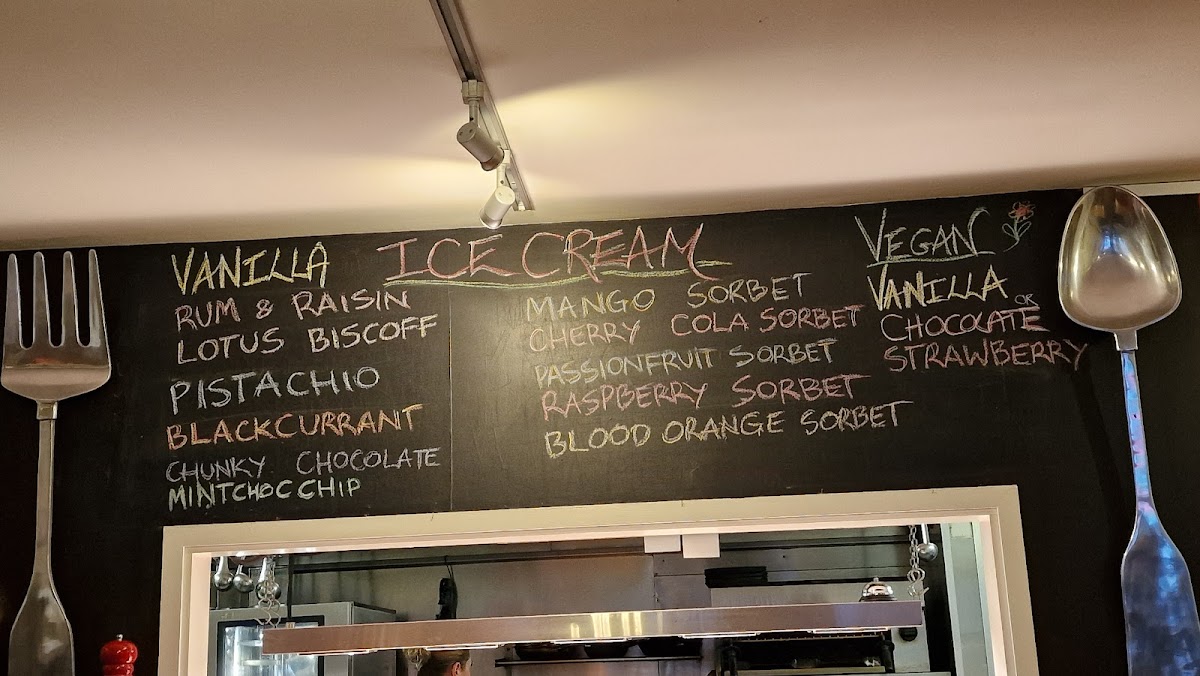 ICE CREAM
VANILLA
RUM & RAISIN
LOTUS BISCOFF
PISTACHIO
BLACKCURRANT
CHUNKY CHOCOLATE
MINTCHOC CHIP
MANGO SORBET
CHERRY COLA SORBET
PASSIONFRUIT SORBET
RASPBERRY SORBET
BLOOD ORANGE SORBET
VEGAN
VANILLA OR
CHOCOLATE
STRAWBERRY